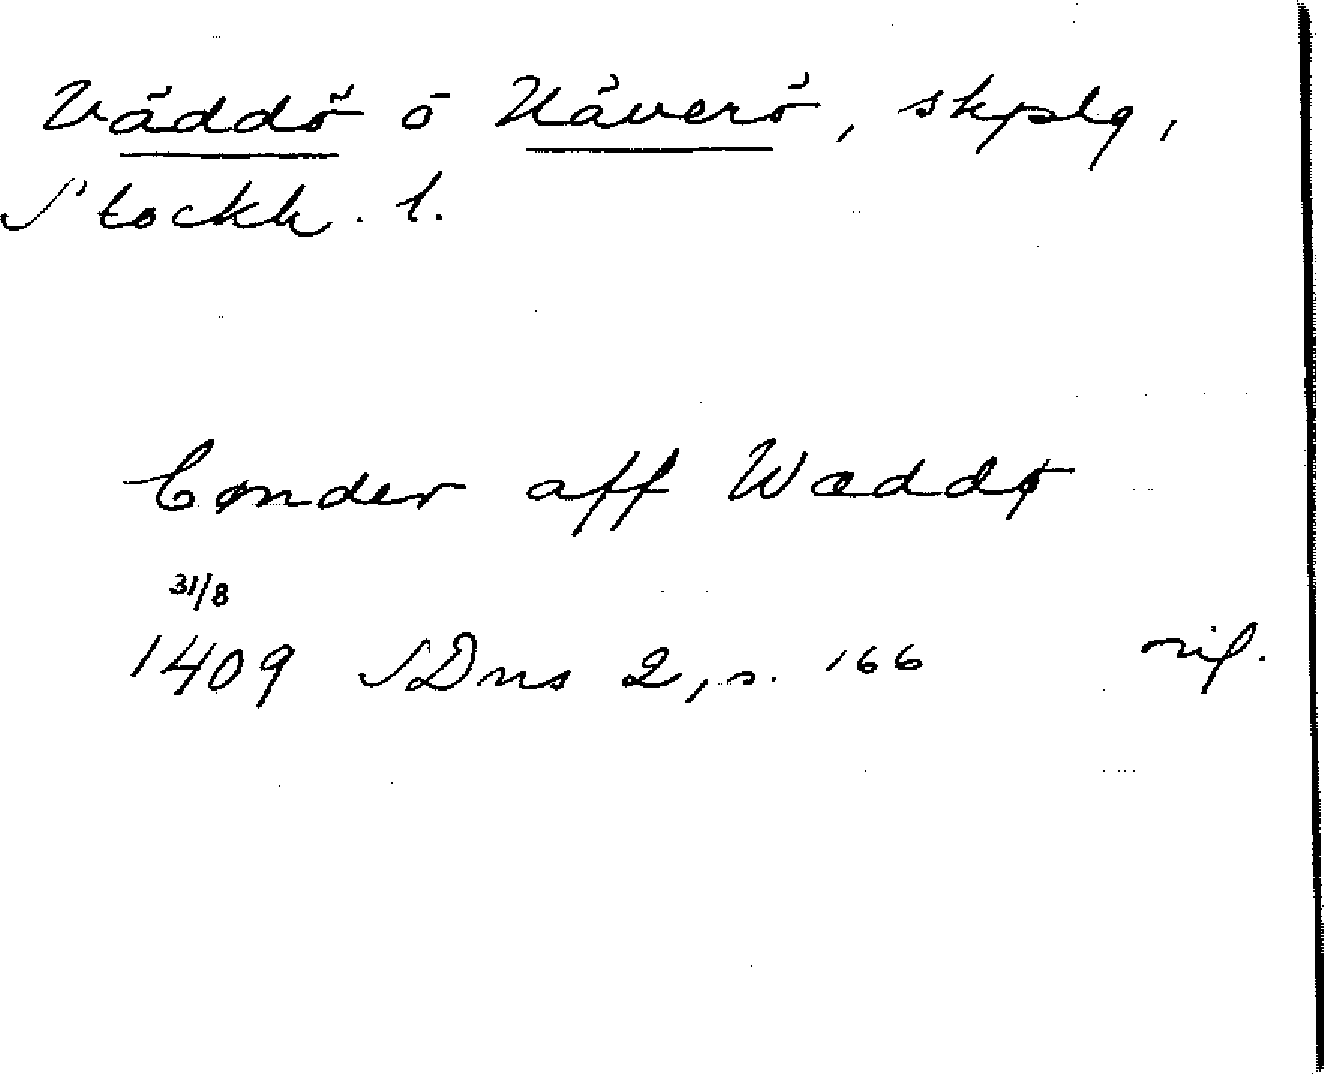 Väddö o Häverö, skplg,
Stockh. l.
bønder aff Wæddø
31/8
1409 SDns 2, s. 166 orig.